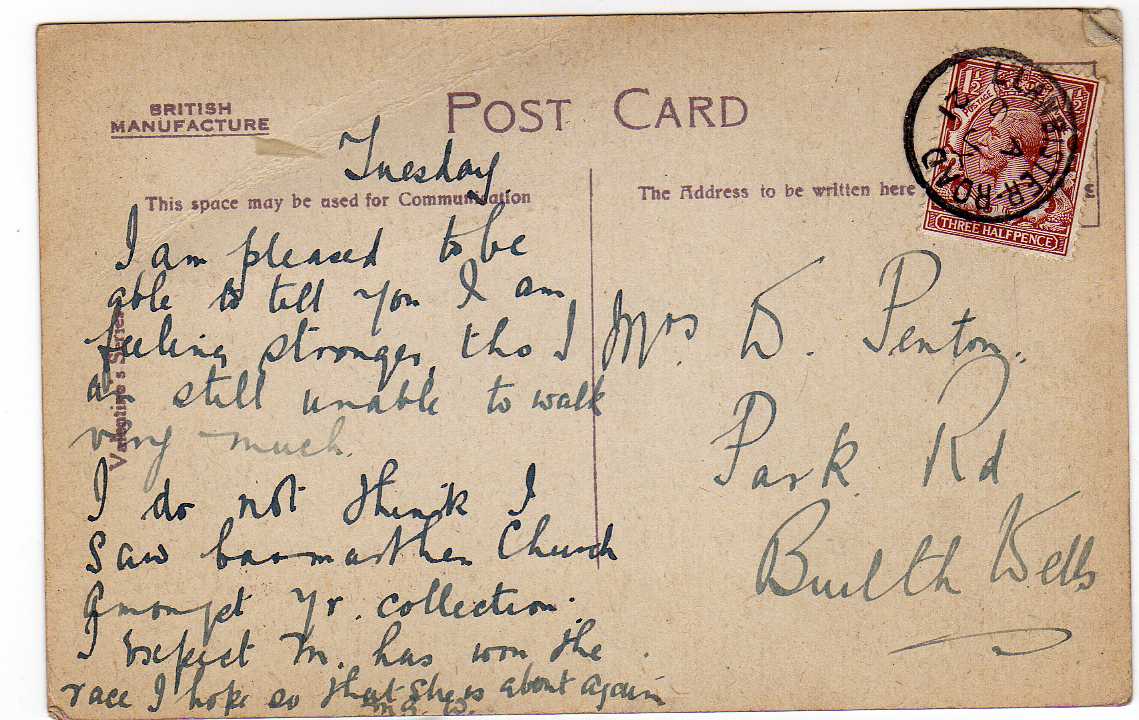 BRITISH
MANUFACTURE
POST CARD
This space may be used for Communication
The Address to be written here
Valentine's Series
Tuesday
I am pleased to be
able to tell you I am
feeling stronger, tho I
am still unable to walk
very much.
I do not think I
saw Carmarthen Church
Amongst yr. collection.
I expect M. has won the
race I hope so & that she is about again
M. G. W.
Mrs D. Penton.
Park Rd
Builth Wells
1½ 1½
POSTAGE
THREE HALFPENCE
LLANBISTER-ROAD